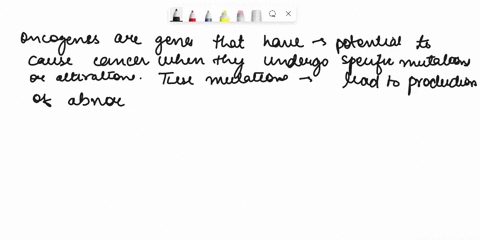 Oncogenes are genes that have → potential to
cause cancer when they undergo specific mutations
or alteration. These mutations → lead to production
of abnor